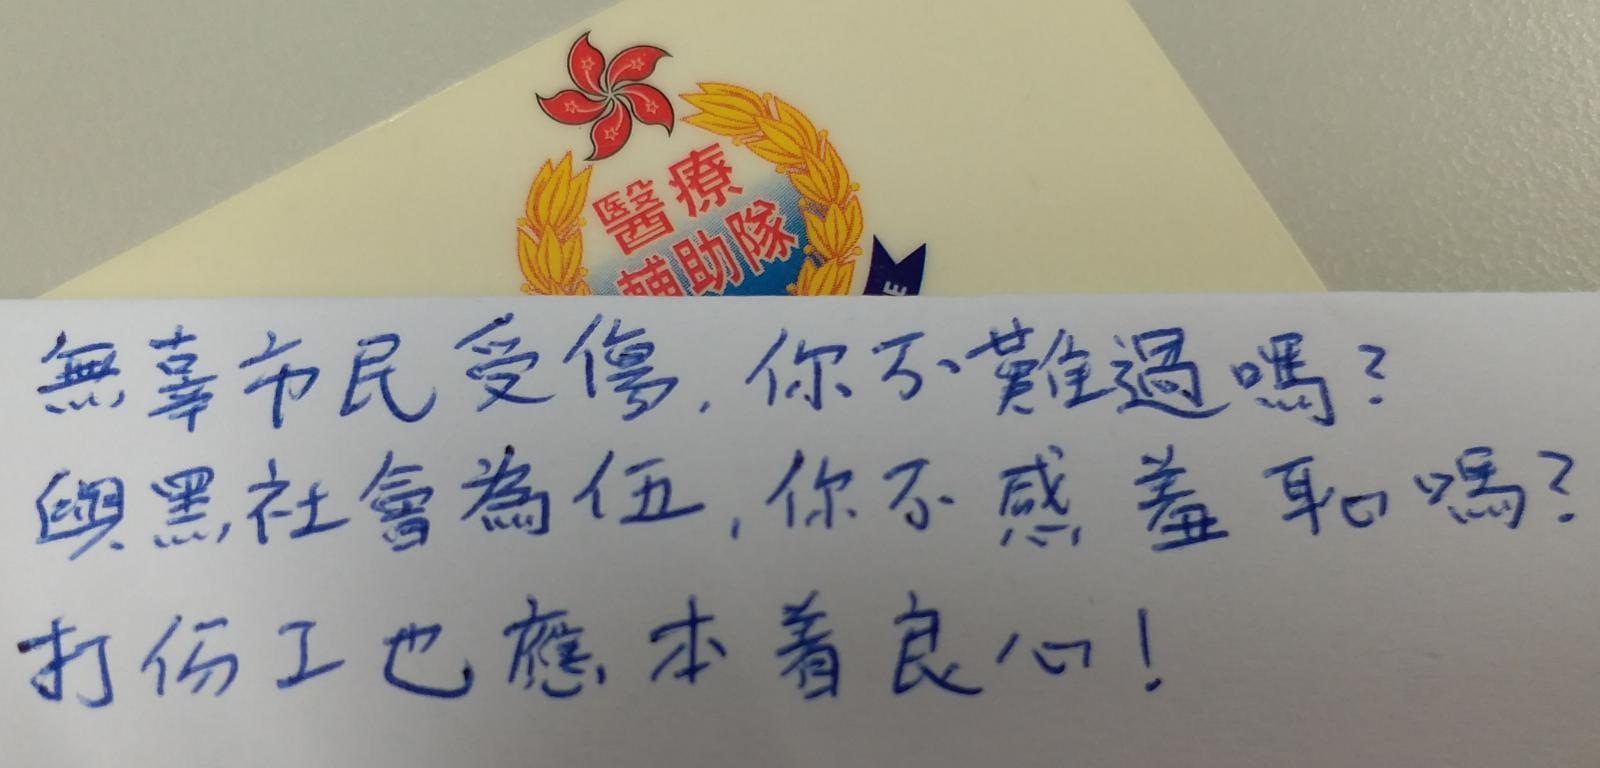 醫療
輔助隊
E
無辜市民受傷，你不難過嗎？
與黑社會為伍，你不感羞恥嗎？
打份工也應本着良心！